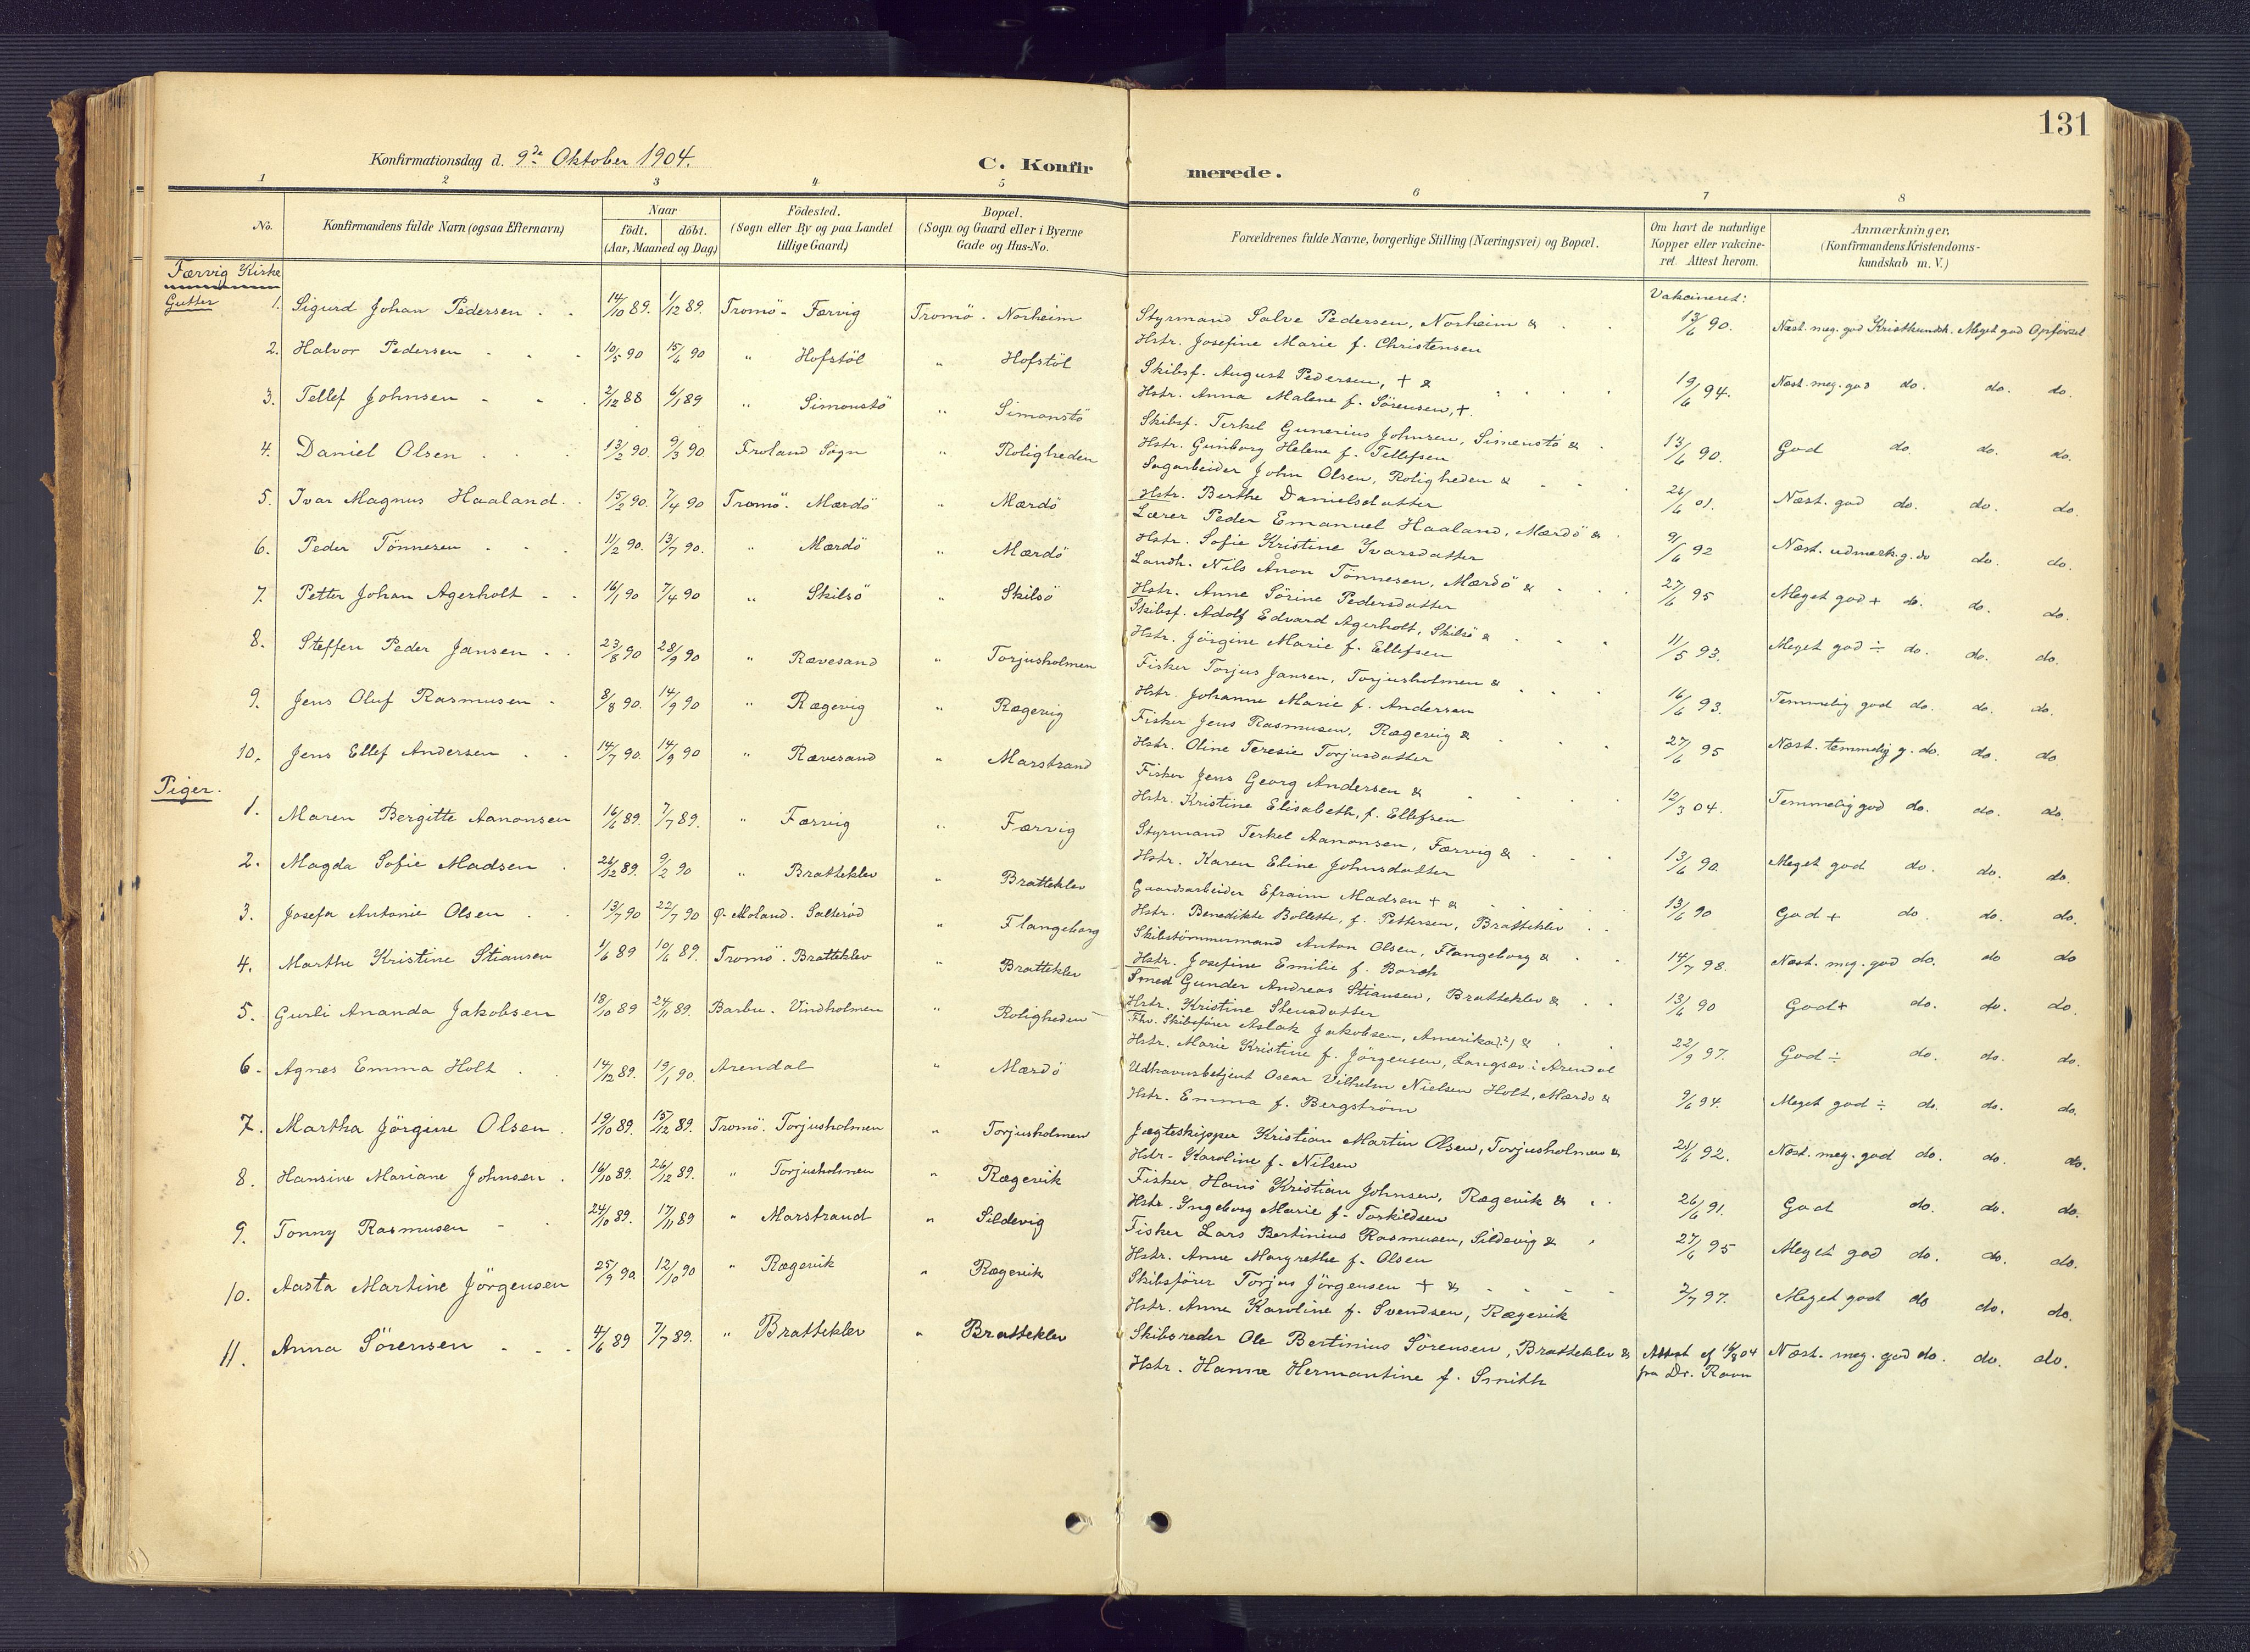 131
Konfirmationsdag d. 9de Oktober 1904.
C. Konfirmerede.
1 2 3 4 5 6 7 8
No.
Konfirmandens fulde Navn (ogsaa Efternavn)
Naar
födt. döbt.
(Aar, Maaned og Dag)
Födested.
(Sogn eller By og paa Landet
tillige Gaard)
Bopæl.
(Sogn og Gaard eller i Byerne
Gade og Hus-No.
Forældrenes fulde Navne, borgerlige Stilling (Næringsvei) og Bopæl.
Om havt de naturlige
Kopper eller vakcine-
ret. Attest herom.
Anmærkninger.
(Konfirmandens Kristendoms-
kundskab m. V.)
Færvig Kirke
Gutter
Vakcineret:
1. Sigurd Johan Pedersen 14/10 89. 1/12 89. Tromö - Færvig Tromö - Norheim Styrmand Salve Pedersen, Norheim & 13/6 90. Næst. meg. god Kristkundsk. Meget god Opförsel
Hstr. Josefine Marie f. Christensen
2. Halvor Pedersen 10/5 90 15/6 90 " Hofstöl " Hofstöl Skibsf. August Pedersen, + & 19/6 94. Næst. meg. god do. do. do.
Hstr. Anna Malene f. Sörensen, +.
3. Tellef Johnsen 2/12 88 6/1 89 " Simonstö " Simonstö Skibsf. Terkel Gunerius Johnsen, Simonstö & 13/6 90. God do. do. do.
Hstr. Gunborg Helene f. Tellefsen
4. Daniel Olsen 13/2 90. 9/3 90 Froland Sogn " Roligheden Sagarbeider John Olsen, Roligheden & 01. Næst. god do. do. do.
Hstr. Berthe Danielsdatter
5. Ivar Magnus Haaland 15/2 90. 7/4 90 Tromö. Mærdö " Mærdö Lærer Peder Emanuel Haaland, Mærdö & 9/6 92 Næst. udmærk. g. do do. do.
Hstr. Sofie Kristine Ivarsdatter
6. Peder Tönnesen 11/2 90. 13/7 90. " Mærdö " Mærdö Landh. Nils Ånon Tönnesen, Mærdö & 27/6 95 Meget god + do. do. do.
Hstr. Anne Sörine Pedersdatter
7. Petter Johan Agerholt 16/1 90 7/4 90 " Skilsö " Skilsö Skibsf. Adolf Edvard Agerholt, Skilsö & 11/5 93. Meget god ÷ do. do. do.
Hstr. Jörgine Marie f. Ellefsen
8. Steffen Peder Jansen 23/8 90 28/9 90 " Rævesand " Torjusholmen Fisker Torjus Jansen, Torjusholmen & 16/6 93. Temmelig god do. do. do.
Hstr. Johanne Marie f. Andersen
9. Jens Oluf Rasmusen 8/8 90. 14/9 90 " Rægevig " Rægevig Fisker Jens Rasmusen, Rægevig & 27/6 95 Næst. temmelig g. do. do. do.
Hstr. Oline Teresie Torjusdatter
10. Jens Ellef Andersen 14/7 90. 14/9 90 " Rævesand " Marstrand Fisker Jens Georg Andersen & 12/3 04. Temmelig god do. do. do.
Hstr. Kristine Elisabeth, f. Ellefsen
Piger.
1. Maren Bergitte Aanonsen 16/6 89. 7/7 89. " Færvig " Færvig Styrmand Terkel Aanonsen, Færvig & 13/6 90. Meget god do. do. do.
Hstr. Karen Eline Johnsdatter
2. Magda Sofie Madsen 26/12 89. 9/2 90 " Bratteklev " Bratteklev Gaardsarbeider Efraim Madsen + & 13/6 90 God + do. do. do.
Hstr. Benedikte Bollette, f. Pettersen, Bratteklev
3. Josefa Antonie Olsen 13/7 90 22/7 90 Ø. Moland. Salteröd " Flangeborg Skibstömmermand Anton Olsen, Flangeborg & 14/7 98. Næst. meg. god do. do do
Hstr. Josefine Emilie f. Borch
4. Marthe Kristine Stiansen 1/6 89 10/6 89. Tromö. Bratteklev " Bratteklev Smed Gunder Andreas Stiansen, Bratteklev & 13/6 90 God + do. do. do.
Hstr. Kristine Stensdatter
5. Gurli Ananda Jakobsen 18/10 89 24/11 89. Barbu. Vindholmen " Roligheden Fhv. Skibsförer Aslak Jakobsen, Amerika(?) & 22/9 97. God ÷ do. do. do.
Hstr. Marie Kristine f. Jörgensen, Langsæv i Arendal
6. Agnes Emma Holt 14/12 89. 19/1 90. Arendal " Mærdö Udhavnsbetjent Oscar Vilhelm Nielsen Holt, Mærdö & 9/6 94. Meget god ÷ do. do. do.
Hstr. Emma f. Bergström
7. Martha Jörgine Olsen 19/10 89. 15/12 89. Tromö. Torjusholmen " Torjusholmen Jægteskipper Kristian Martin Olsen, Torjusholmen & 92. Næst. meg. god do. do. do.
Hstr. Karoline f. Nilsen
8. Hansine Mariane Johnsen 16/10 89. 26/12 89. " Torjusholmen " Rægevik Fisker Hans Kristian Johnsen, Rægevik & 26/6 91. God do. do. do.
Hstr. Ingeborg Marie f. Torkildsen
9. Tonny Rasmusen 24/10 89. 17/11 89 " Marstrand " Sildevig Fisker Lars Bertinius Rasmusen, Sildevig & 27/6 95 Meget god do. do. do.
Hstr. Anne Margrethe f. Olsen
10. Aasta Martine Jörgensen 25/9 90 12/10 90 " Rægevik " Rægevik Skibsförer Torjus Jörgensen + & 2/7 97. Meget god do do. do.
Hstr. Anne Karoline f. Svendsen, Rægevik
11. Anna Sörensen 4/6 89 7/7 89. " Bratteklev " Bratteklev Skibsreder Ole Bertinius Sörensen, Bratteklev & Attest af 04 Næst. meg. god do. do. do.
Hstr. Hanna Hermantine f. Smith fra Dr. Ravn